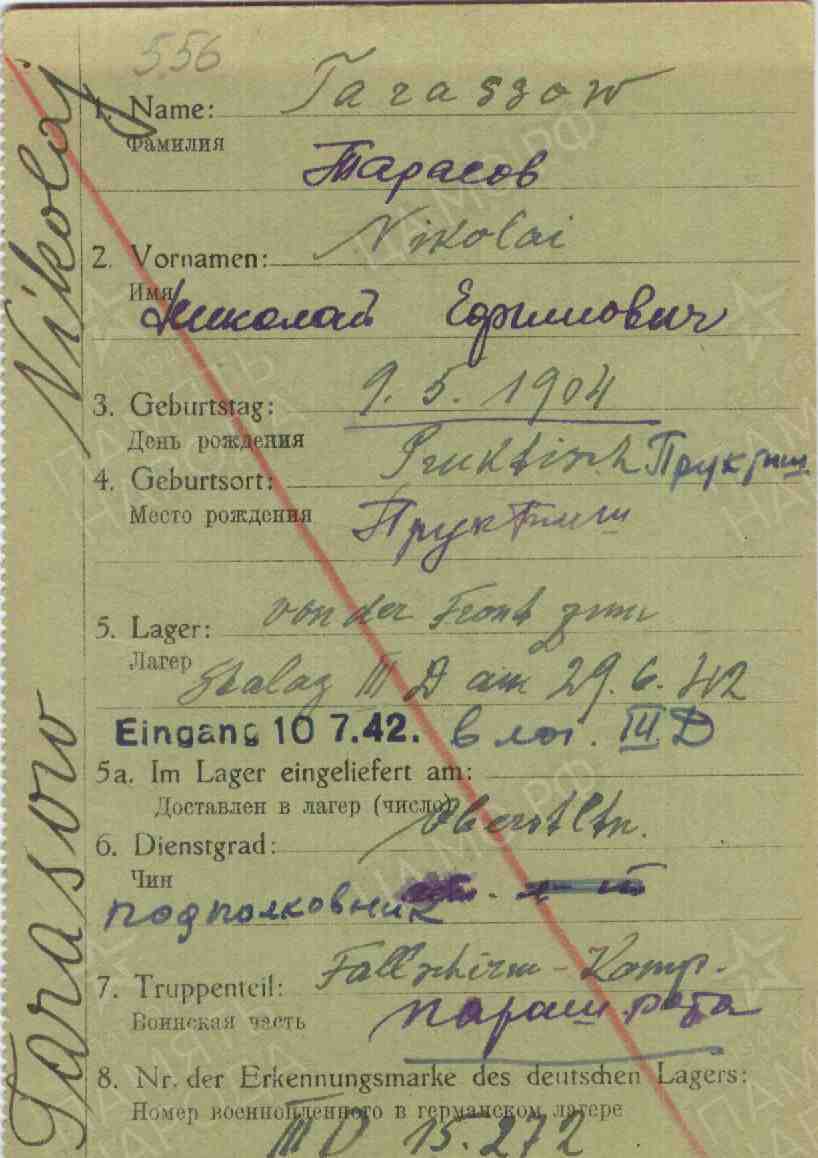 556
Nikolaj
Tarasow
1. Name: Taraszow
Фамилия
Тарасов
2. Vornamen: Nikolai
Имя
Николай Ефимович
3. Geburtstag: 9. 5. 1904
День рождения
4. Geburtsort: Pruktisch
Место рождения
5. Lager: von der Front zum
Лагер
Stalag III D am 29. 6. 42
Eingang 10 7.42. в лаг. III. D
5a. Im Lager eingeliefert am:
Доставлен в лагер (число)
6. Dienstgrad: Oberstltn.
Чин
подполковник
7. Truppenteil: Fallschirm-Komp.
Воинская часть параш. рота
8. Nr. der Erkennungsmarke des deutschen Lagers:
Номер военнопленного в германском лагере
III D 15.272